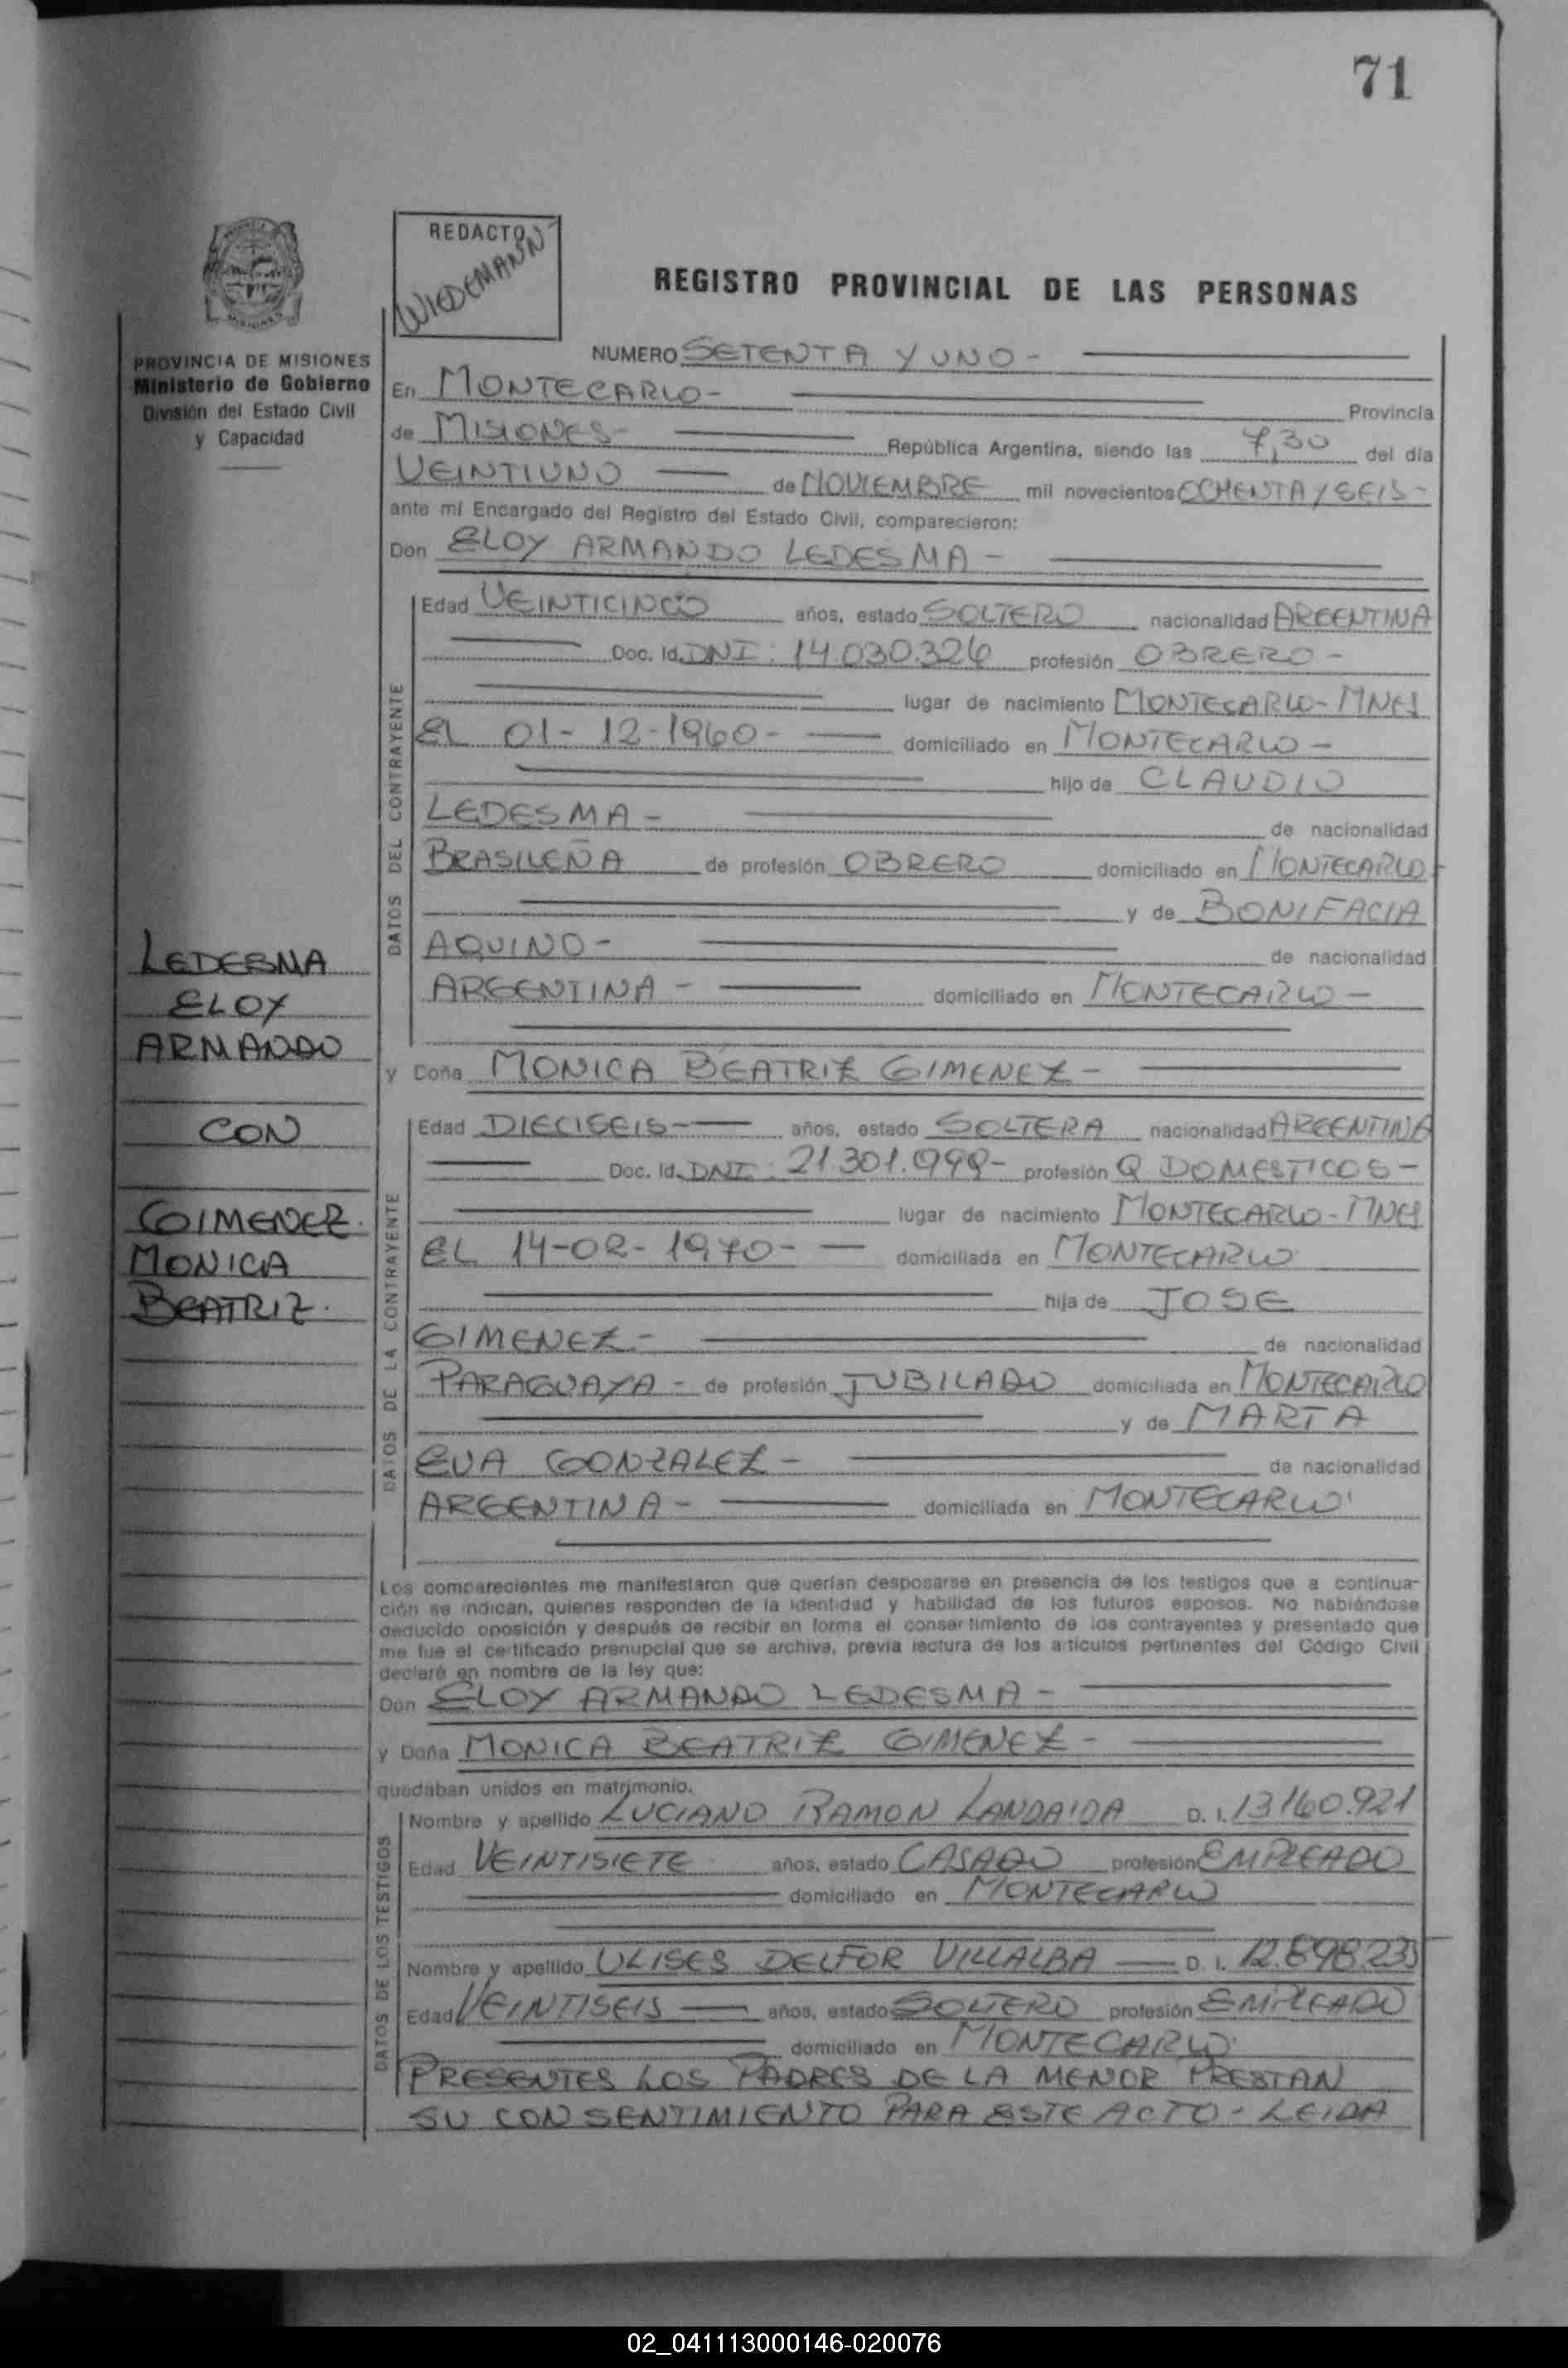 71
REDACTO
WIEDEMANN
REGISTRO PROVINCIAL DE LAS PERSONAS
PROVINCIA DE MISIONES
Ministerio de Gobierno
División del Estado Civil
y Capacidad
NUMERO SETENTA Y UNO -
En MONTECARLO -
Provincia
de MISIONES - República Argentina, siendo las 7,30 del día
VEINTIUNO de NOVIEMBRE mil novecientos OCHENTA Y SEIS -
ante mí Encargado del Registro del Estado Civil, comparecieron:
Don ELOY ARMANDO LEDESMA -
DATOS DEL CONTRAYENTE
Edad VEINTICINCO años, estado SOLTERO nacionalidad ARGENTINA
Doc. Id. DNI: 14.030.326 profesión OBRERO -
lugar de nacimiento MONTECARLO - MNES
EL 01-12-1960 - domiciliado en MONTECARLO -
hijo de CLAUDIO
LEDESMA - de nacionalidad
BRASILEÑA de profesión OBRERO domiciliado en MONTECARLO -
y de BONIFACIA
AQUINO - de nacionalidad
ARGENTINA - domiciliado en MONTECARLO -
LEDESMA
ELOY
ARMANDO
CON
GIMENEZ.
MONICA
BEATRIZ.
y Doña MONICA BEATRIZ GIMENEZ -
DATOS DE LA CONTRAYENTE
Edad DIECISEIS - años, estado SOLTERA nacionalidad ARGENTINA
Doc. Id. DNI: 21.301.999 - profesión Q DOMESTICOS -
lugar de nacimiento MONTECARLO - MNES
EL 14-02-1970 - domiciliada en MONTECARLO
hija de JOSE
GIMENEZ - de nacionalidad
PARAGUAYA - de profesión JUBILADO domiciliada en MONTECARLO
y de MARTA
EVA GONZALEZ - de nacionalidad
ARGENTINA - domiciliada en MONTECARLO
Los comparecientes me manifestaron que querían desposarse en presencia de los testigos que a continua-
ción se indican, quienes responden de la identidad y habilidad de los futuros esposos. No habiéndose
deducido oposición y después de recibir en forma el consertimiento de los contrayentes y presentado que
me fue el certificado prenupcial que se archiva, previa lectura de los artículos pertinentes del Código Civil
declaré en nombre de la ley que:
Don ELOY ARMANDO LEDESMA -
y Doña MONICA BEATRIZ GIMENEZ -
quedaban unidos en matrimonio.
DATOS DE LOS TESTIGOS
Nombre y apellido LUCIANO RAMON LANDAIDA D. I. 13.160.921
Edad VEINTISIETE años, estado CASADO profesión EMPLEADO
domiciliado en MONTECARLO
Nombre y apellido ULISES DELFOR VILLALBA D. I. 12.898.235
Edad VEINTISEIS años, estado SOLTERO profesión EMPLEADO
domiciliado en MONTECARLO.
PRESENTES LOS PADRES DE LA MENOR PRESTAN
SU CONSENTIMIENTO PARA ESTE ACTO - LEIDA
02_041113000146-020076